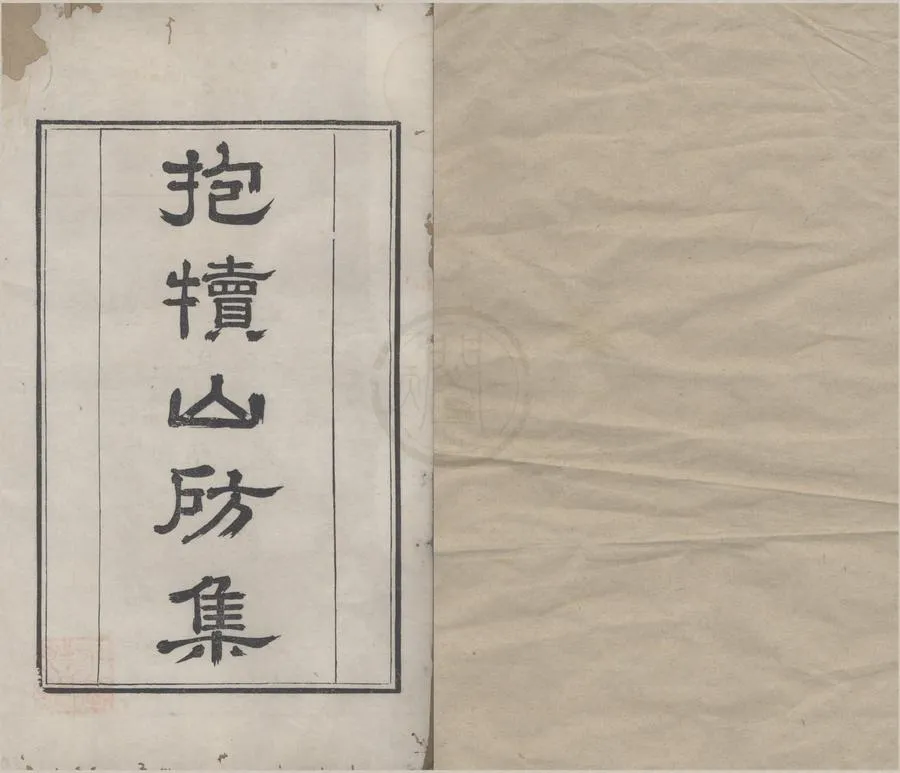 抱犢山房集